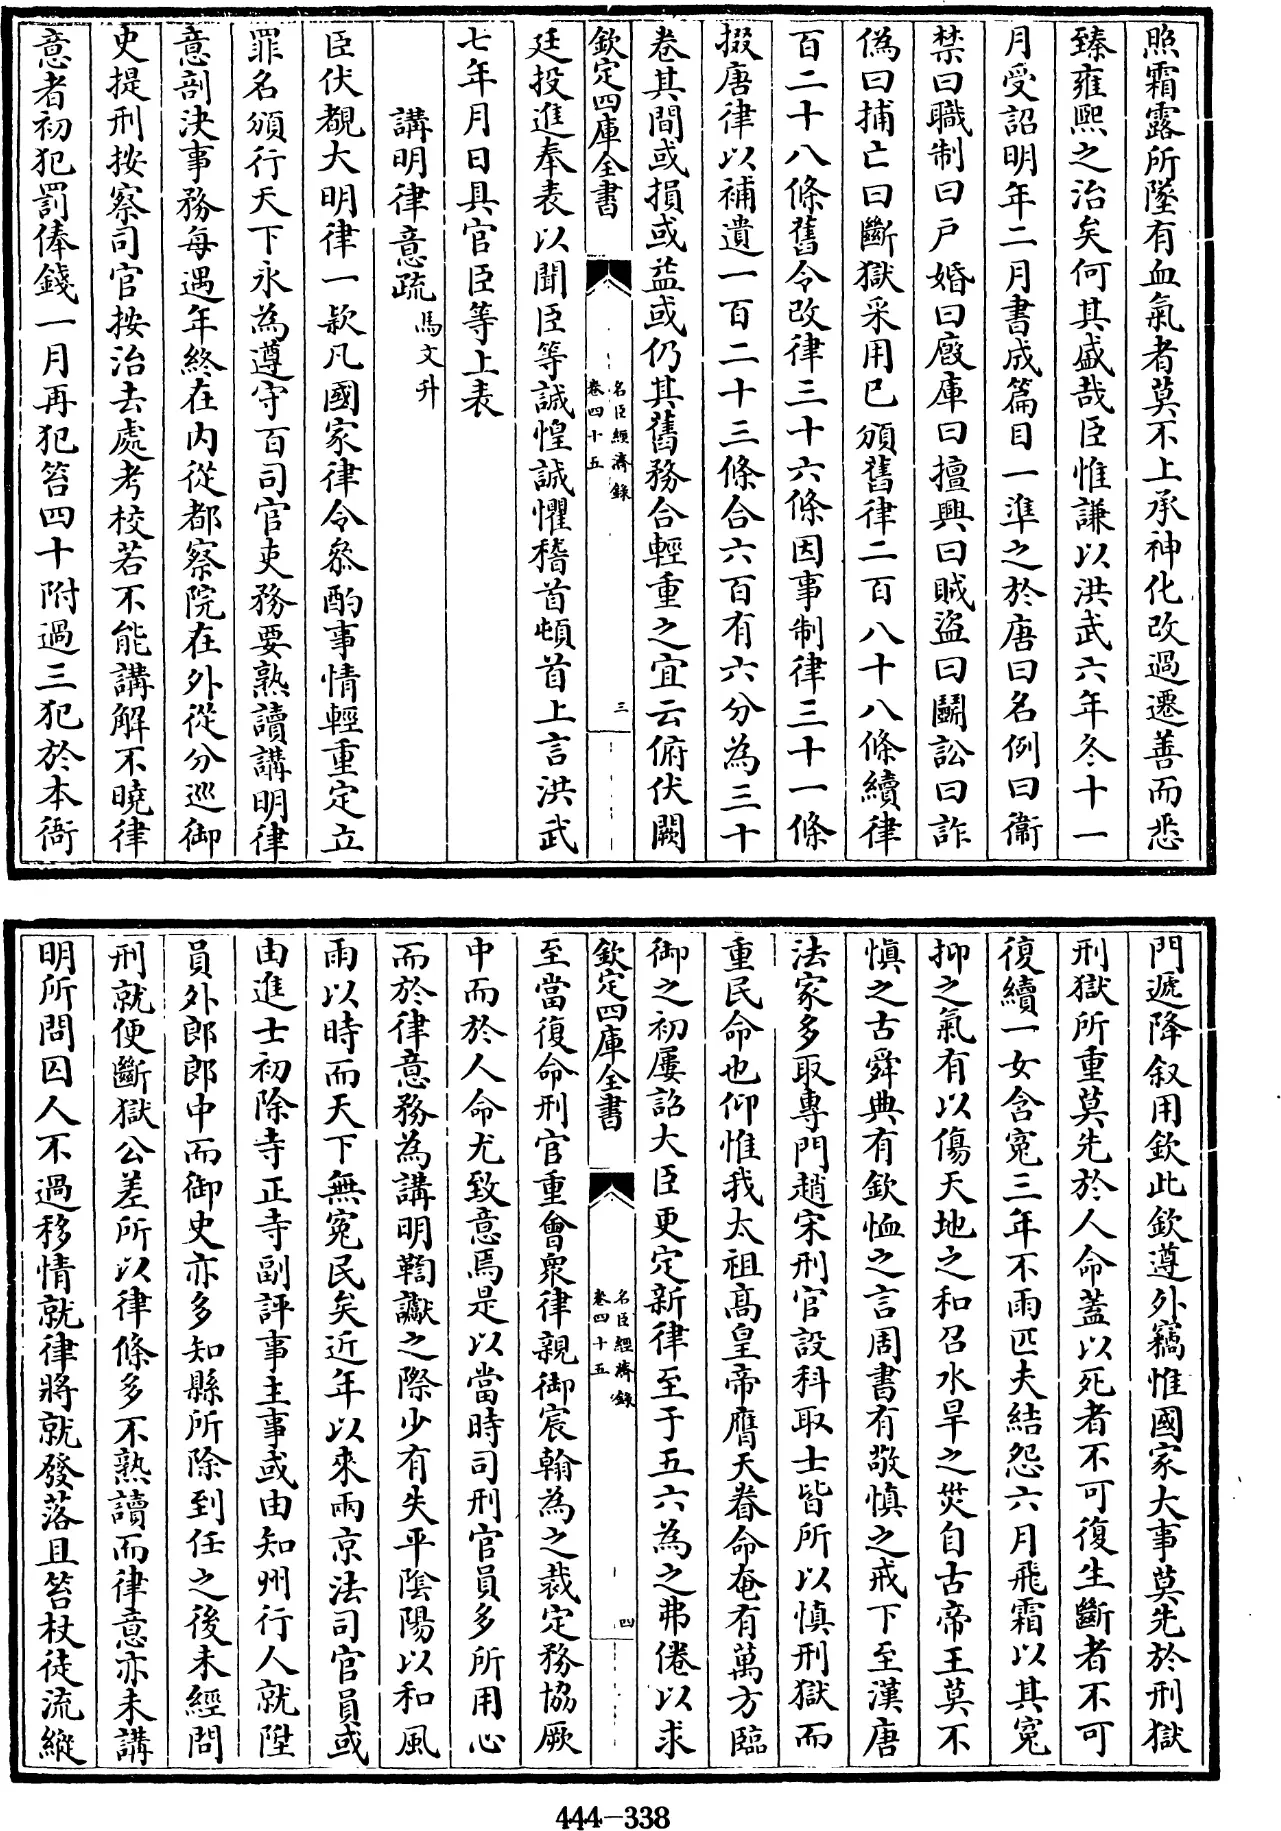 照霜露所墜有血氣者莫不上承神化改過遷善而悉
臻雍熙之治矣何其盛哉臣惟謙以洪武六年冬十一
月受詔明年二月書成篇目一準之於唐曰名例曰衞
禁曰職制曰戶婚曰廄庫曰擅興曰賊盜曰鬭訟曰詐
偽曰捕亡曰斷獄采用已頒舊律二百八十八條續律
百二十八條舊令改律三十六條因事制律三十一條
掇唐律以補遺一百二十三條合六百有六分為三十
卷其間或損或益或仍其舊務合輕重之宜云俯伏闕
欽定四庫全書
名臣經濟錄
卷四十五
三
廷投進奉表以聞臣等誠惶誠懼稽首頓首上言洪武
七年月日具官臣等上表
講明律意疏 馬文升
臣伏覩大明律一款凡國家律令叅酌事情輕重定立
罪名頒行天下永為遵守百司官吏務要熟讀講明律
意剖決事務每遇年終在内從都察院在外從分巡御
史提刑按察司官按治去處考校若不能講解不曉律
意者初犯罰俸錢一月再犯笞四十附過三犯於本衙
門遞降叙用欽此欽遵外竊惟國家大事莫先於刑獄
刑獄所重莫先於人命蓋以死者不可復生斷者不可
復續一女含寃三年不雨匹夫結怨六月飛霜以其寃
抑之氣有以傷天地之和召水旱之災自古帝王莫不
慎之古舜典有欽恤之言周書有敬慎之戒下至漢唐
法家多取專門趙宋刑官設科取士皆所以慎刑獄而
重民命也仰惟我太祖髙皇帝膺天眷命奄有萬方臨
御之初屢詔大臣更定新律至于五六為之弗倦以求
欽定四庫全書
名臣經濟錄
卷四十五
四
至當復命刑官重會衆律親御宸翰為之裁定務協厥
中而於人命尤致意焉是以當時司刑官員多所用心
而於律意務為講明鞫讞之際少有失平陰陽以和風
雨以時而天下無寃民矣近年以來兩京法司官員或
由進士初除寺正寺副評事主事或由知州行人就陞
員外郎郎中而御史亦多知縣所除到任之後未經問
刑就便斷獄公差所以律條多不熟讀而律意亦未講
明所問囚人不過移情就律將就發落且笞杖徒流縱
444-338